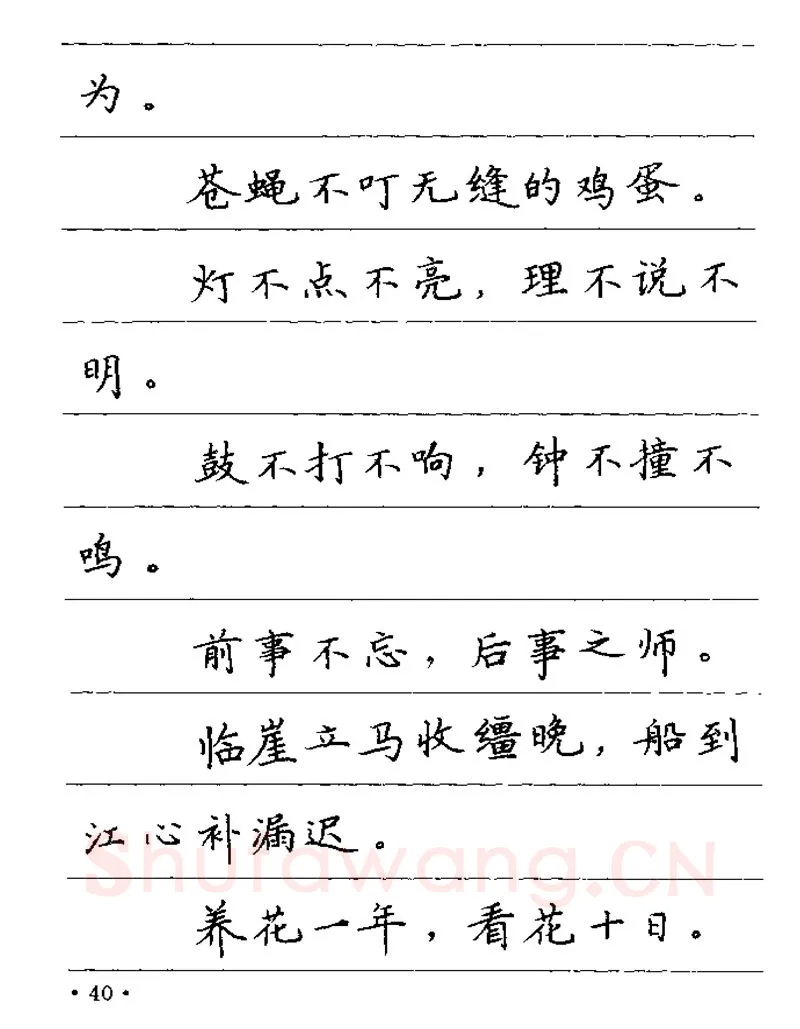 为。
苍蝇不叮无缝的鸡蛋。
灯不点不亮，理不说不
明。
鼓不打不响，钟不撞不
鸣。
前事不忘，后事之师。
临崖立马收缰晚，船到
江心补漏迟。
Shufawang.CN
养花一年，看花十日。
·40·